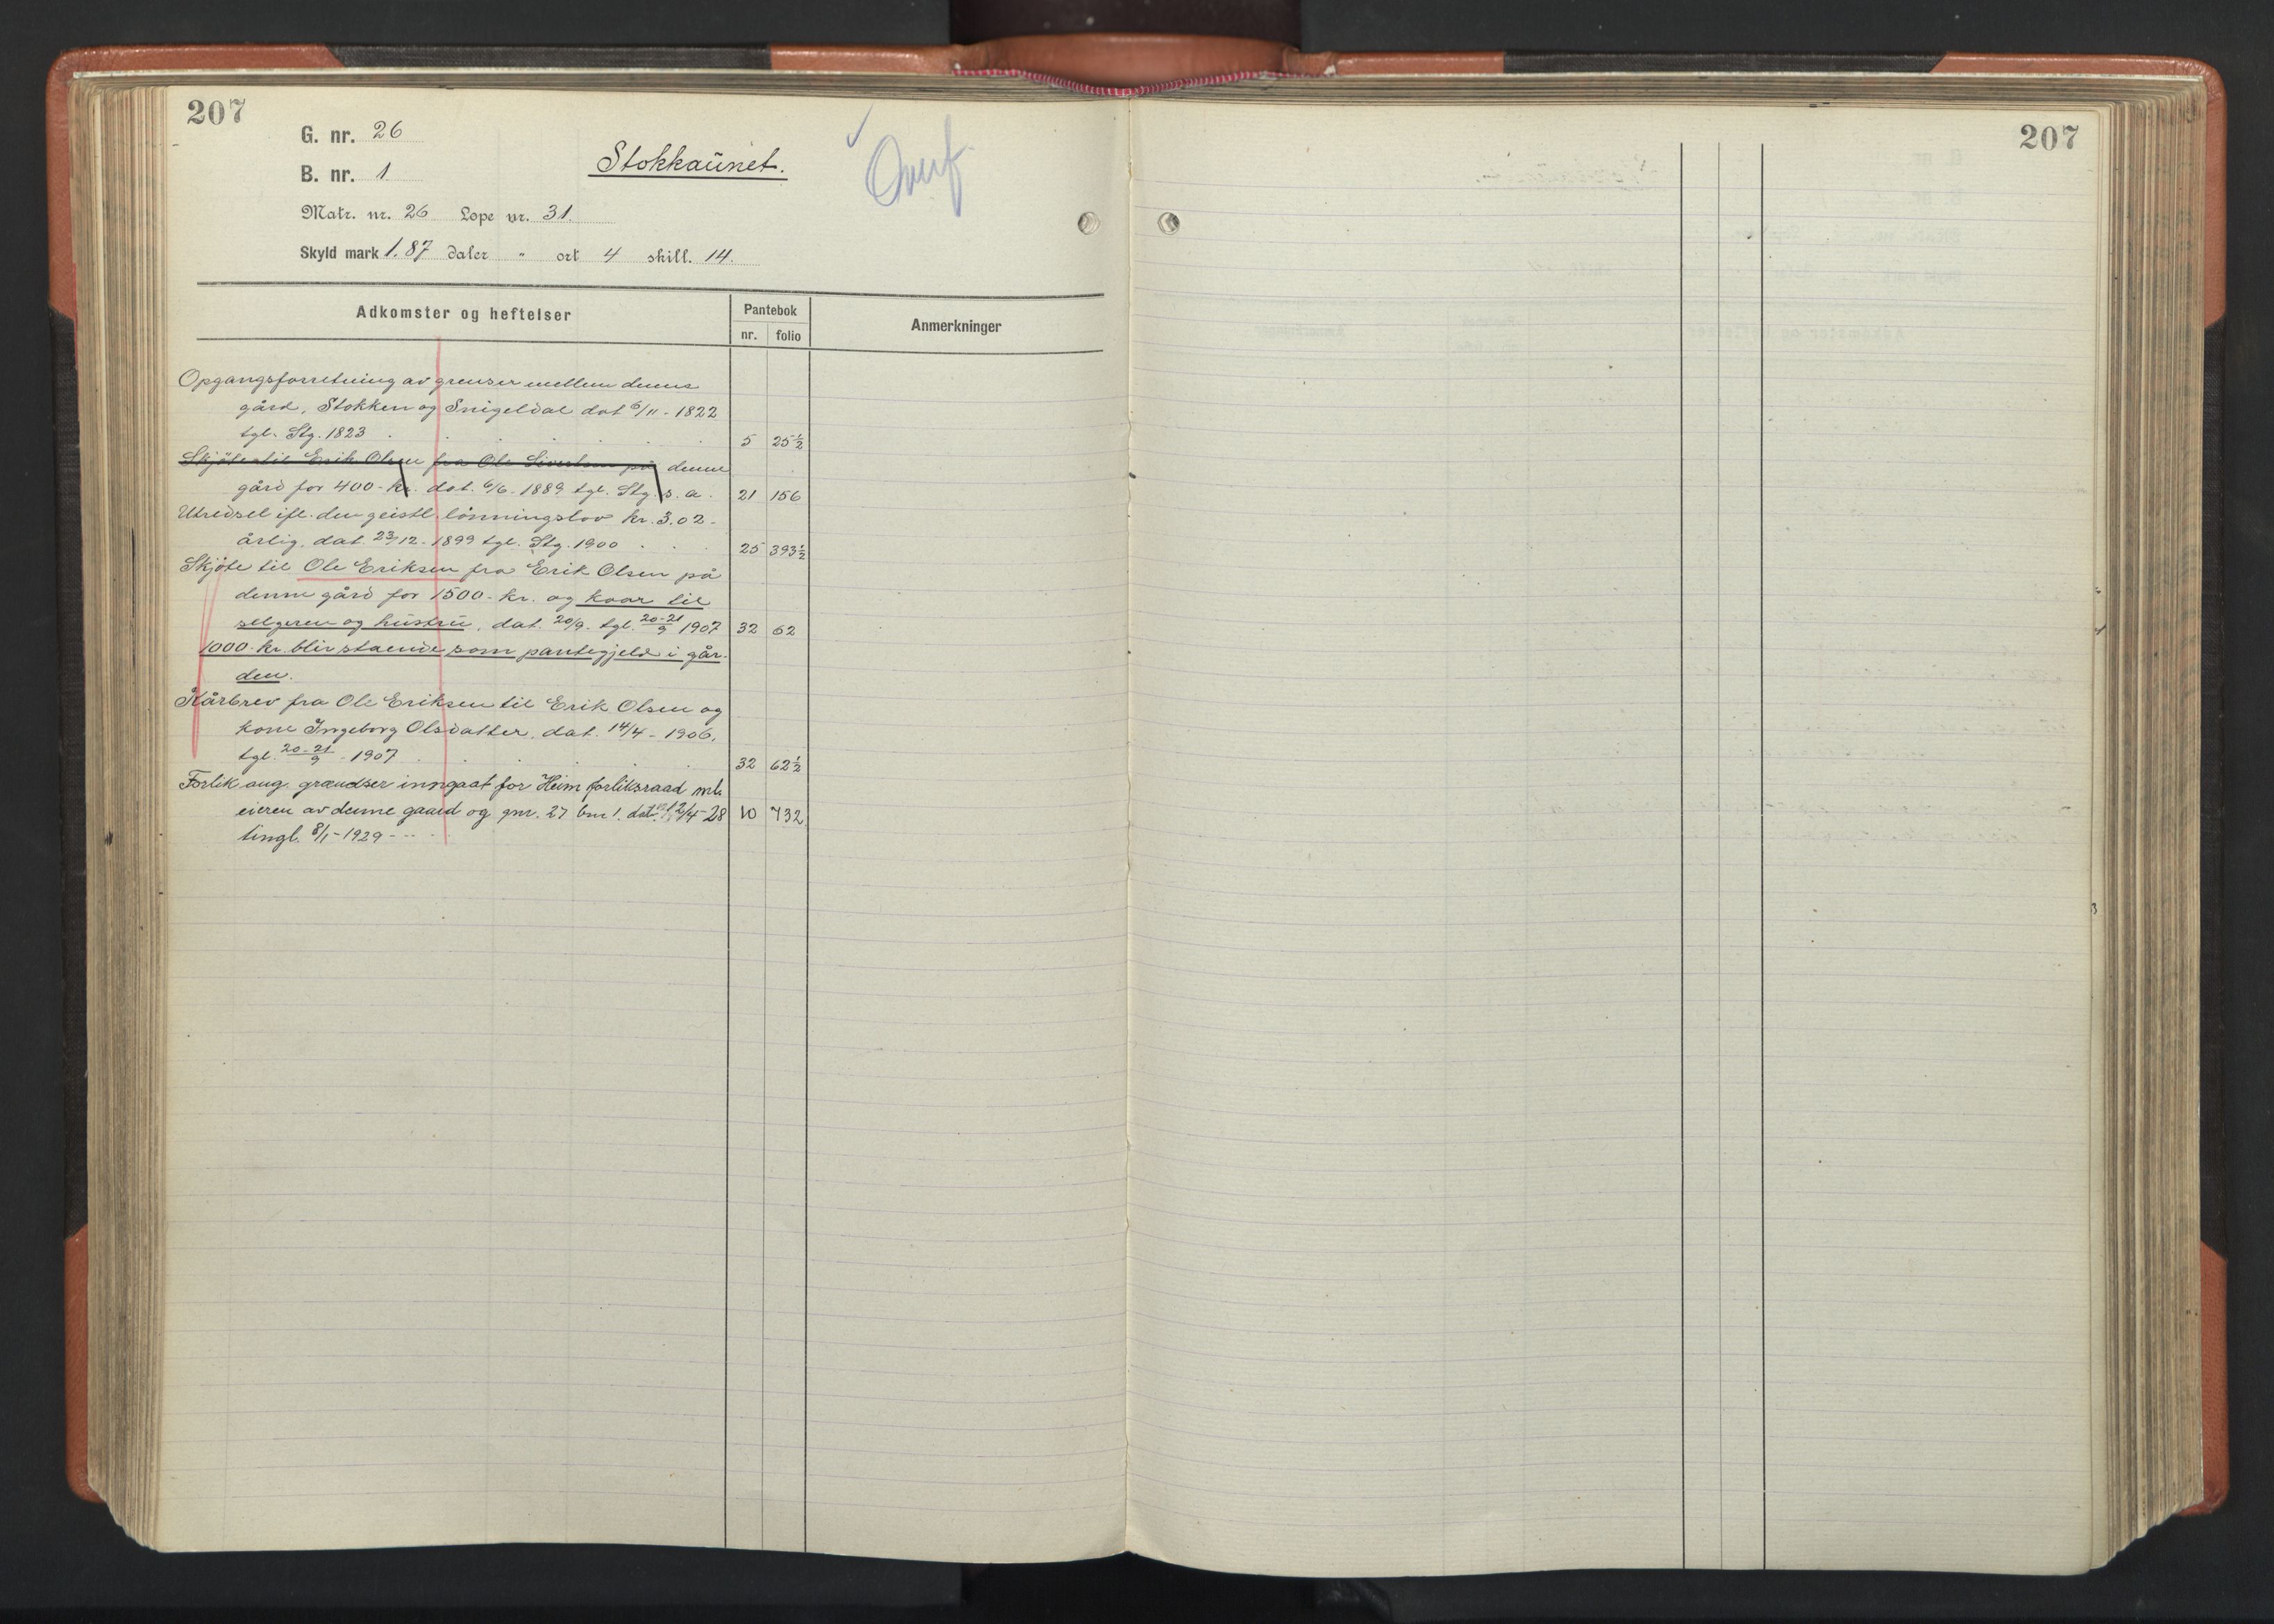 207
G. nr. 26
B. nr. 1
Stokkaünet.
Overf.
Matr. nr. 26 Løpe nr. 31.
Skyld mark 1.87 daler " ort 4 skill. 14.
Adkomster og heftelser
Pantebok
nr. folio
Anmerkninger
Opgangsforretning av grenser mellem denne
gård, Stokken og Snigeldal dat 6/11 - 1822
tgl. Stg. 1823 . . . . . . 5 25½
Skjøte til Erik Olsen fra Ole Sivertsen på denne
gård for 400 - kr. dat. 6/6 - 1889 tgl. Stg. s. a. 21 156
Utredsel ifl. den geistl. lønningslov kr. 3.02 -
årlig, dat. 23/12 - 1899 tgl. Stg. 1900 . . . 25 393½
Skjøte til Ole Eriksen fra Erik Olsen på
denne gård for 1500 - kr. og kaar til
selgeren og hüstrü, dat. 20/9 - tgl. 20-21/9 1907 32 62
1000 - kr. blir staende som pantegjeld i går-
den.
Kårbrev fra Ole Eriksen til Erik Olsen og
kone Ingeborg Olsdatter, dat. 14/4 - 1906,
tgl. 20-21/9 - 1907 . . . . . 32 62½
Forlik ang. grændser inngaat for Heim forliksraad ml.
eieren av denne gaard og gnr. 27 bnr 1. dat. 12/4 - 28 10 732
tingl. 8/1 - 1929 - - -
207